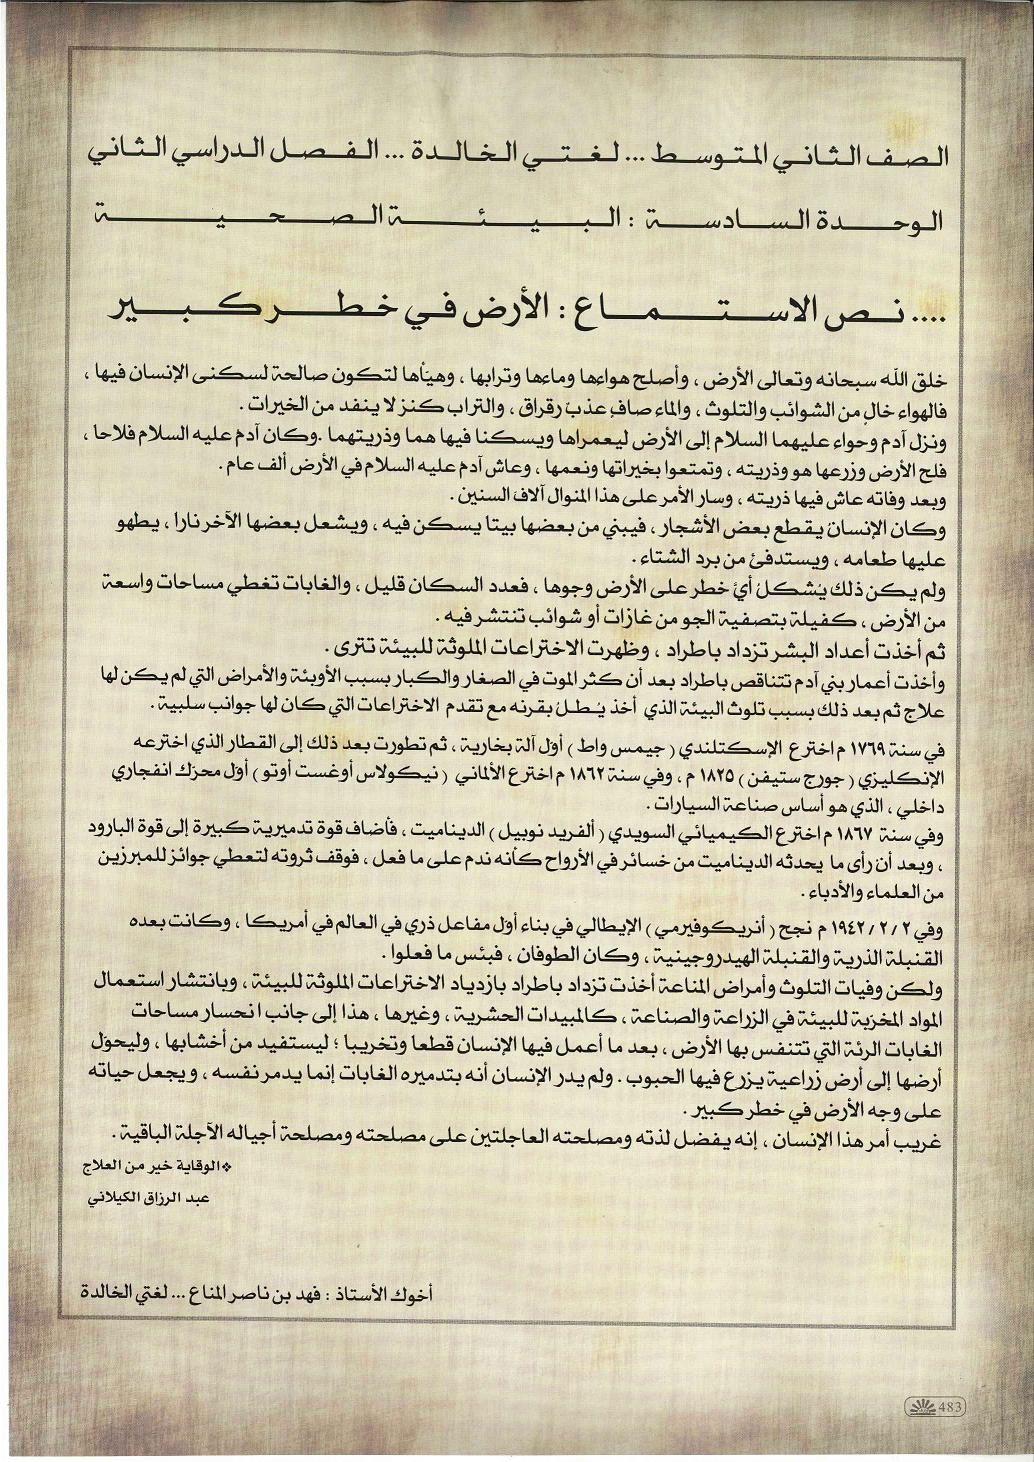 الصف الثاني المتوسط ... لغتي الخالدة ... الفصل الدراسي الثاني
الوحدة السادسة : البيئة الصحية
.... نص الاستماع : الأرض في خطر كبير
خلق الله سبحانه وتعالى الأرض ، وأصلح هواءها وماءها وترابها ، وهيّأها لتكون صالحة لسكنى الإنسان فيها ،
فالهواء خالٍ من الشوائب والتلوث ، والماء صافٍ عذبٌ رقراق ، والتراب كنز لا ينفد من الخيرات .
ونزل آدم وحواء عليهما السلام إلى الأرض ليعمراها ويسكنا فيها هما وذريتهما .وكان آدمُ عليه السلام فلاحا ،
فلح الأرض وزرعها هو وذريته ، وتمتعوا بخيراتها ونعمها ، وعاش آدم عليه السلام في الأرض ألف عام .
وبعد وفاته عاش فيها ذريته ، وسار الأمر على هذا المنوال آلاف السنين .
وكان الإنسان يقطع بعض الأشجار ، فيبني من بعضها بيتا يسكن فيه ، ويشعل بعضها الآخر نارا ، يطهو
عليها طعامه ، ويستدفئ من برد الشتاء .
ولم يكن ذلك يُشكلُ أيّ خطر على الأرض وجوها ، فعدد السكان قليل ، والغابات تغطي مساحات واسعة
من الأرض ، كفيلة بتصفية الجو من غازات أو شوائب تنتشر فيه .
ثم أخذت أعداد البشر تزداد باطراد ، وظهرت الاختراعات الملوثة للبيئة تترى .
وأخذت أعمار بني آدم تتناقص باطراد بعد أن كثر الموت في الصغار والكبار بسبب الأوبئة والأمراض التي لم يكن لها
علاج ثم بعد ذلك بسبب تلوث البيئة الذي أخذ يُطلّ بقرنه مع تقدم الاختراعات التي كان لها جوانب سلبية .
في سنة ١٧٦٩ م اخترع الإسكتلندي ( جيمس واط ) أوّل آلة بخارية ، ثم تطورت بعد ذلك إلى القطار الذي اخترعه
الإنكليزي ( جورج ستيفن ) ١٨٢٥ م ، وفي سنة ١٨٦٢ م اخترع الألماني ( نيكولاس أوغست أوتو ) أوّل محرّك انفجاري
داخلي ، الذي هو أساس صناعة السيارات .
وفي سنة ١٨٦٧ م اخترع الكيميائي السويدي ( ألفريد نوبيل ) الديناميت ، فأضاف قوة تدميرية كبيرة إلى قوة البارود
، وبعد أن رأى ما يحدثه الديناميت من خسائر في الأرواح كأنه ندم على ما فعل ، فوقف ثروته لتعطي جوائز للمبرزين
من العلماء والأدباء .
وفي ١٩٤٢/٢/٢ م نجح ( أنريكوفيرمي ) الإيطالي في بناء أوّل مفاعل ذري في العالم في أمريكا ، وكانت بعده
القنبلة الذرية والقنبلة الهيدروجينية ، وكان الطوفان ، فبئس ما فعلوا .
ولكن وفيات التلوث وأمراض المناعة أخذت تزداد باطراد بازدياد الاختراعات الملوثة للبيئة ، وبانتشار استعمال
المواد المخرّبة للبيئة في الزراعة والصناعة ، كالمبيدات الحشرية ، وغيرها ، هذا إلى جانب انحسار مساحات
الغابات الرئة التي تتنفس بها الأرض ، بعد ما أعمل فيها الإنسان قطعا وتخريبا ؛ ليستفيد من أخشابها ، وليحوّل
أرضها إلى أرض زراعية يزرع فيها الحبوب . ولم يدر الإنسان أنه بتدميره الغابات إنما يدمر نفسه ، ويجعل حياته
على وجه الأرض في خطر كبير .
غريب أمر هذا الإنسان ، إنه يفضل لذته ومصلحته العاجلتين على مصلحته ومصلحة أجياله الآجلة الباقية .
❖الوقاية خير من العلاج
عبد الرزاق الكيلاني
أخوك الأستاذ : فهد بن ناصر المناع ... لغتي الخالدة
483